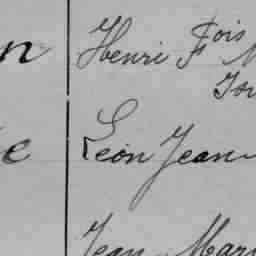 n Henri Fois
e Léon Jean
Jean Mari